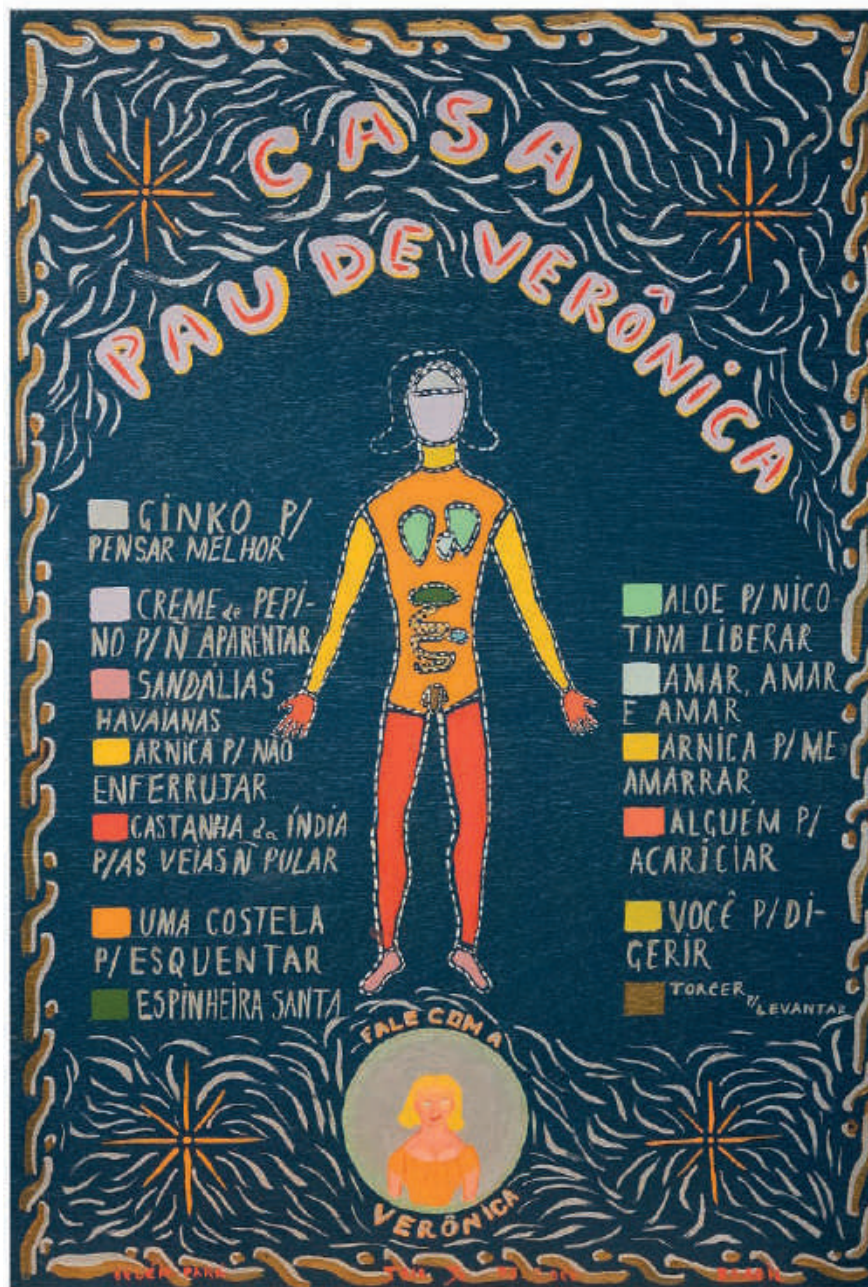 CASA
PAU DE VERÔNICA
GINKO P/
PENSAR MELHOR
CREME de PEPI-
NO P/ Ñ APARENTAR
SANDÁLIAS
HAVAIANAS
ARNICA P/ NÃO
ENFERRUJAR
CASTANHA da ÍNDIA
P/AS VEIAS Ñ PULAR
UMA COSTELA
P/ESQUENTAR
ESPINHEIRA SANTA
ALOE P/ NICO
TINA LIBERAR
AMAR, AMAR
E AMAR
ARNICA P/ ME
AMARRAR
ALGUÉM P/
ACARICIAR
VOCÊ P/ DI-
GERIR
TORCER P/
LEVANTAR
FALE COM A
VERÔNICA